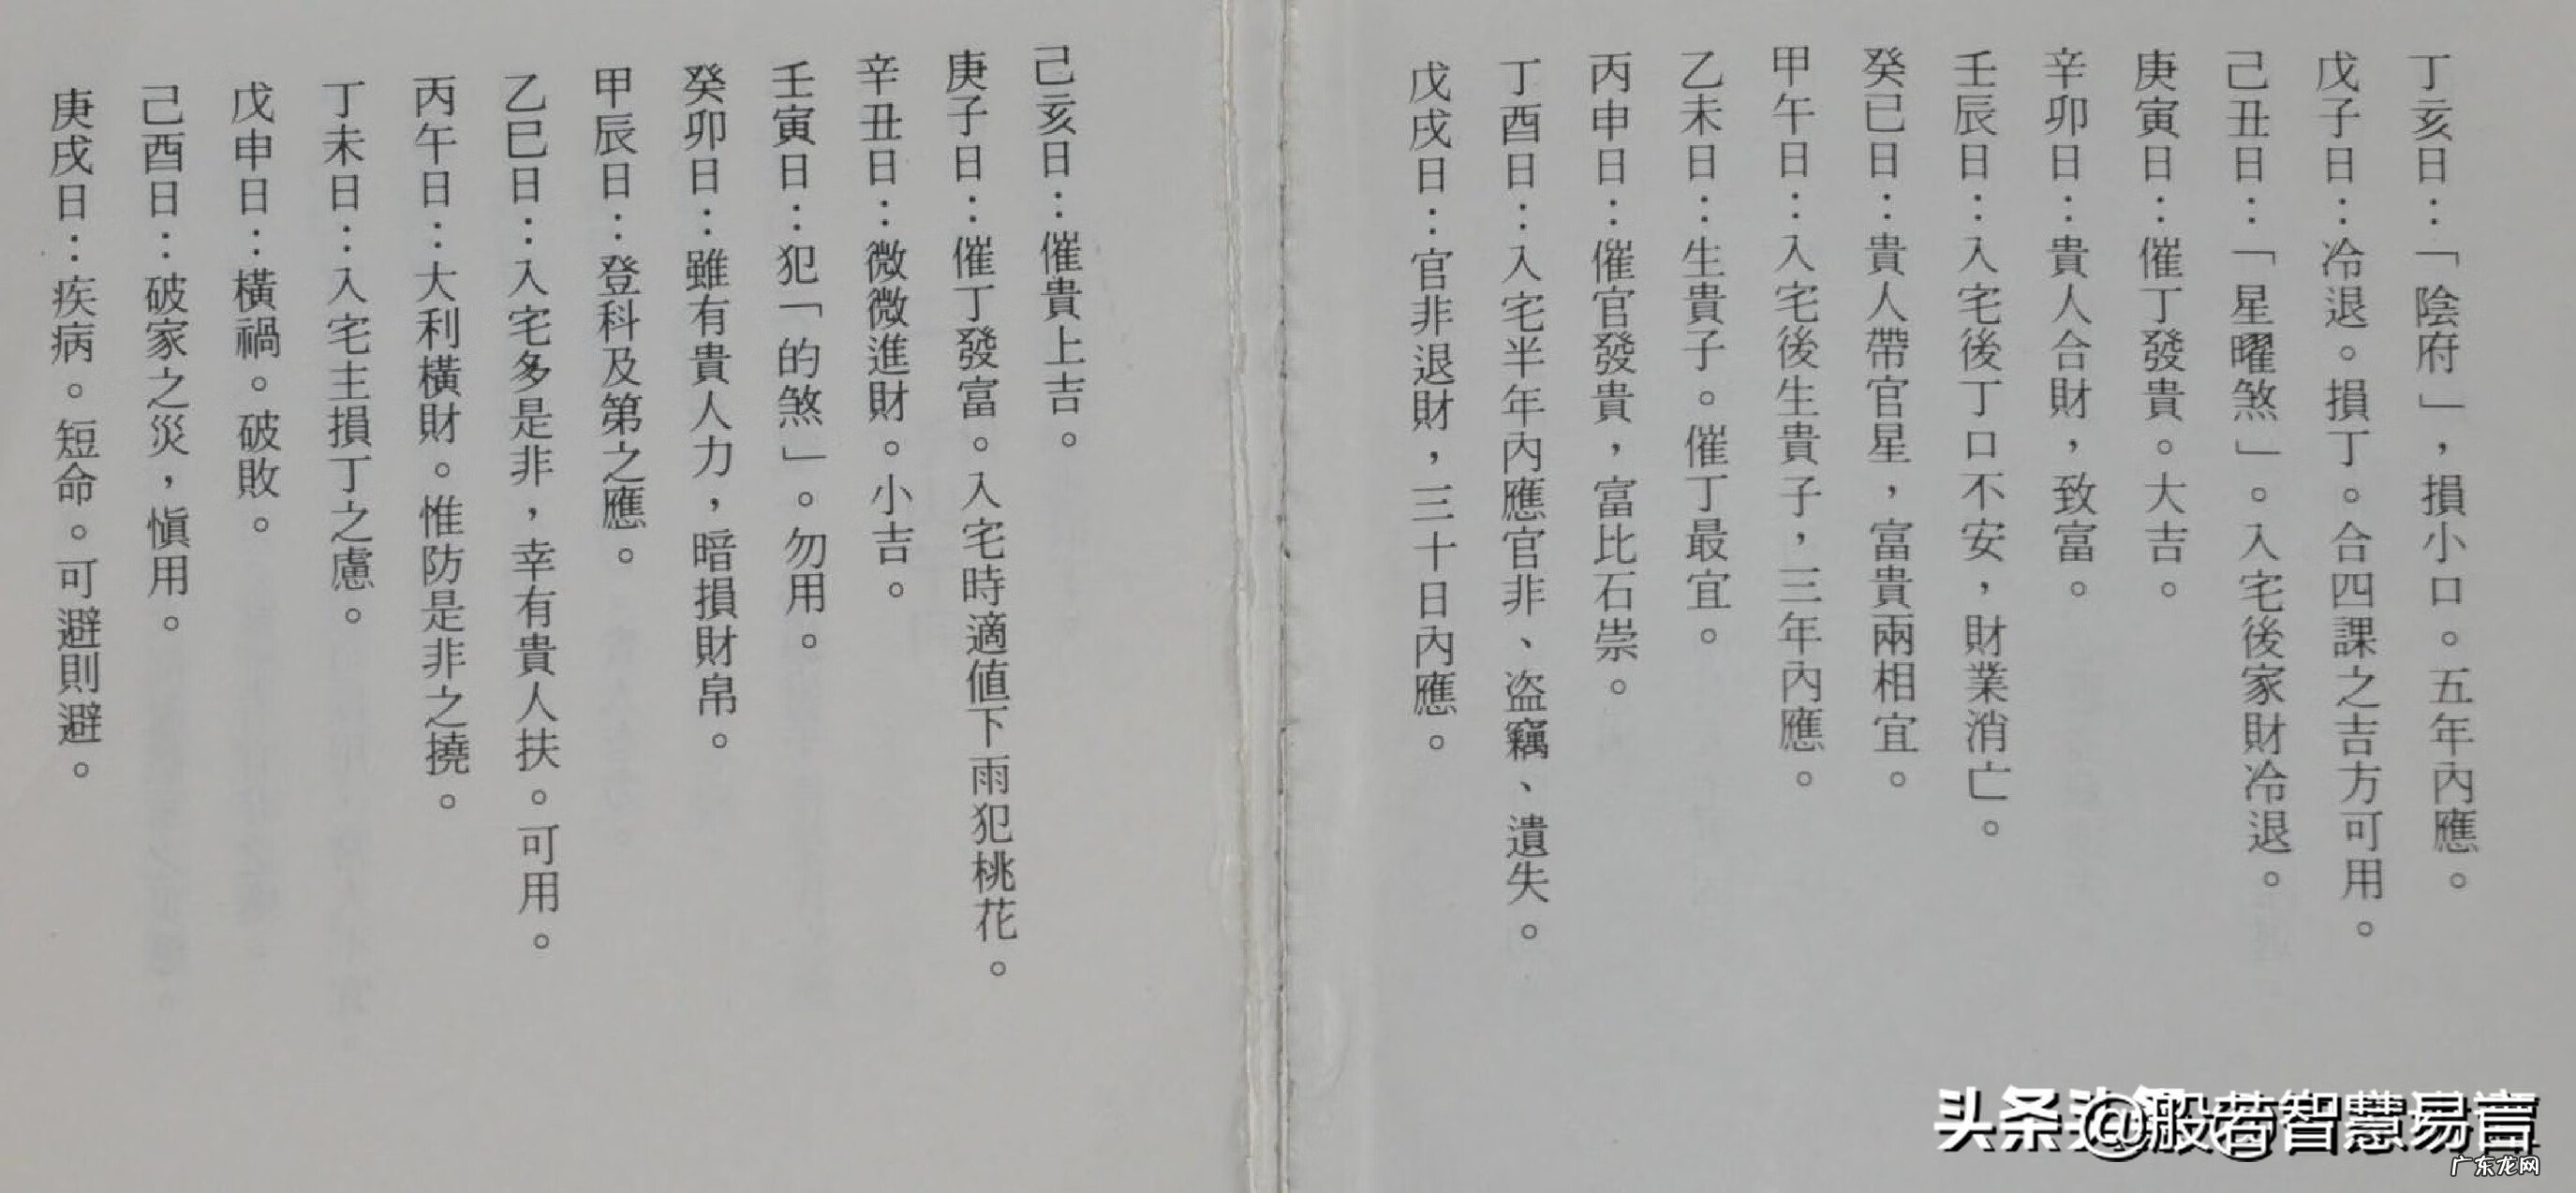 丁亥日：「陰府」，損小口。五年內應。
戊子日：冷退。損丁。合四課之吉方可用。
己丑日：「星曜煞」。入宅後家財冷退。
庚寅日：催丁發貴。大吉。
辛卯日：貴人合財，致富。
壬辰日：入宅後丁口不安，財業消亡。
癸巳日：貴人帶官星，富貴兩相宜。
甲午日：入宅後生貴子，三年內應。
乙未日：生貴子。催丁最宜。
丙申日：催官發貴，富比石崇。
丁酉日：入宅半年內應官非、盜竊、遺失。
戊戌日：官非退財，三十日內應。
己亥日：催貴上吉。
庚子日：催丁發富。入宅時適值下雨犯桃花。
辛丑日：微微進財。小吉。
壬寅日：犯「的煞」。勿用。
癸卯日：雖有貴人力，暗損財帛。
甲辰日：登科及第之應。
乙巳日：入宅多是非，幸有貴人扶。可用。
丙午日：大利橫財。惟防是非之撓。
丁未日：入宅主損丁之慮。
戊申日：橫禍。破敗。
己酉日：破家之災，慎用。
庚戌日：疾病。短命。可避則避。
头条 @般若智慧易言
广东龙网